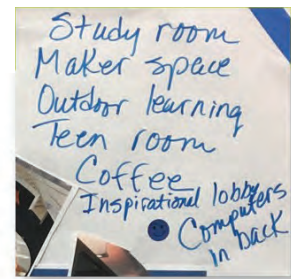 Study room
Maker space
Outdoor learning
Teen room
Coffee
Inspirational lobby
Computers
in back